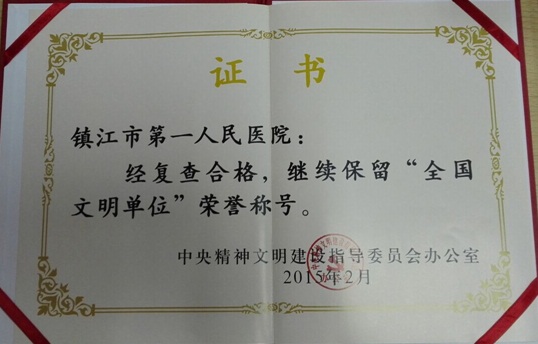 证书
镇江市第一人民医院：
经复查合格，继续保留“全国
文明单位”荣誉称号。
中央精神文明建设指导委员会办公室
2015年2月